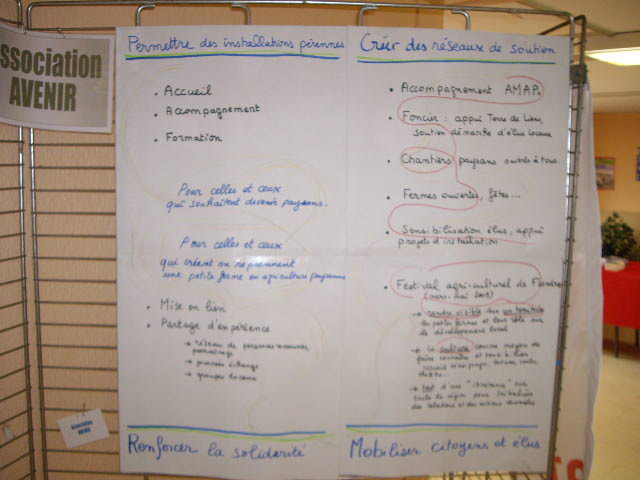 ssociation
AVENIR
Permettre des installations pérennes
• Accueil
• Accompagnement
• Formation
Pour celles et ceux
qui souhaitent devenir paysans.
Pour celles et ceux
qui créent ou reprennent
une petite ferme en agriculture paysanne
• Mise en lien
• Partage d'expérience
→ réseau de personnes ressources,
parrainage
→ journées échange
→ groupes locaux
Renforcer la solidarité
Créer des réseaux de soutien
• Accompagnement AMAPs
• Foncier : appui Terre de Liens,
soutien démarche d'élus locaux
• Chantiers paysans ouverts à tous
• Fermes ouvertes, fêtes...
• Sensibilisation élus, appui
projets d'installation
• Festival agri-culturel de Flandres
→ rendre visible sur un territoire
les petites fermes et leur rôle sur
le développement local
→ la culture comme moyen de
faire connaître et sensibiliser
→ test d'une "itinérance" sur
toute la région pour
des relations et des actions durables
Mobiliser citoyens et élus
Association
AVENIR